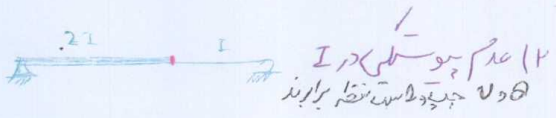 2I
I
۲) عدم پیوستگی در I
θ و v چپ و راست نقطه برابرند